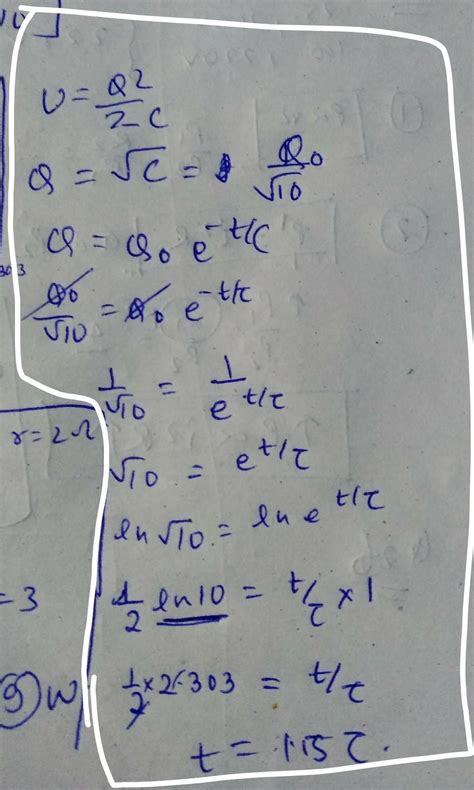 U = Q²/2C
Q = √C = Q₀/√10
Q = Q₀ e^-t/C
Q₀/√10 = Q₀ e^-t/τ
1/√10 = 1/e^t/τ
r = 2Ω
√10 = e^t/τ
ln √10 = ln e^t/τ
= 3
1/2 ln 10 = t/τ × 1
9) W
1/2 × 2.303 = t/τ
t = 1.15 τ.